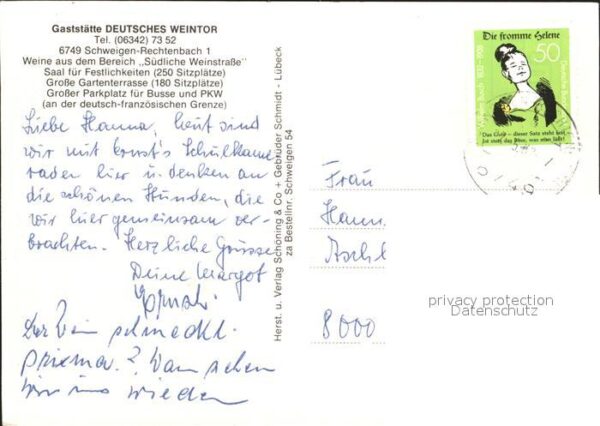 Gaststätte DEUTSCHES WEINTOR
Tel. (06342) 73 52
6749 Schweigen-Rechtenbach 1
Weine aus dem Bereich „Südliche Weinstraße"
Saal für Festlichkeiten (250 Sitzplätze)
Große Gartenterrasse (180 Sitzplätze)
Großer Parkplatz für Busse und PKW
(an der deutsch-französischen Grenze)
Liebe Hanna, heut sind
wir mit Ernst's Schulkame
raden hier u. denken an
die schönen Stunden, die
wir hier gemeinsam ver-
brachten. Herzliche Grüsse
Deine Margot
Ernst.
Der Wein schmeckt
prima. Wann sehen
wir uns wieder
Herst. u. Verlag Schöning & Co + Gebrüder Schmidt - Lübeck
za Bestellnr. Schweigen 54
Die fromme Helene
50
Wilhelm Busch 1832-1908
Deutsche Bundespost
Das Gute – dieser Satz steht fest –
Ist stets das Böse, was man läßt!
Frau
Hann
8000
privacy protection
Datenschutz